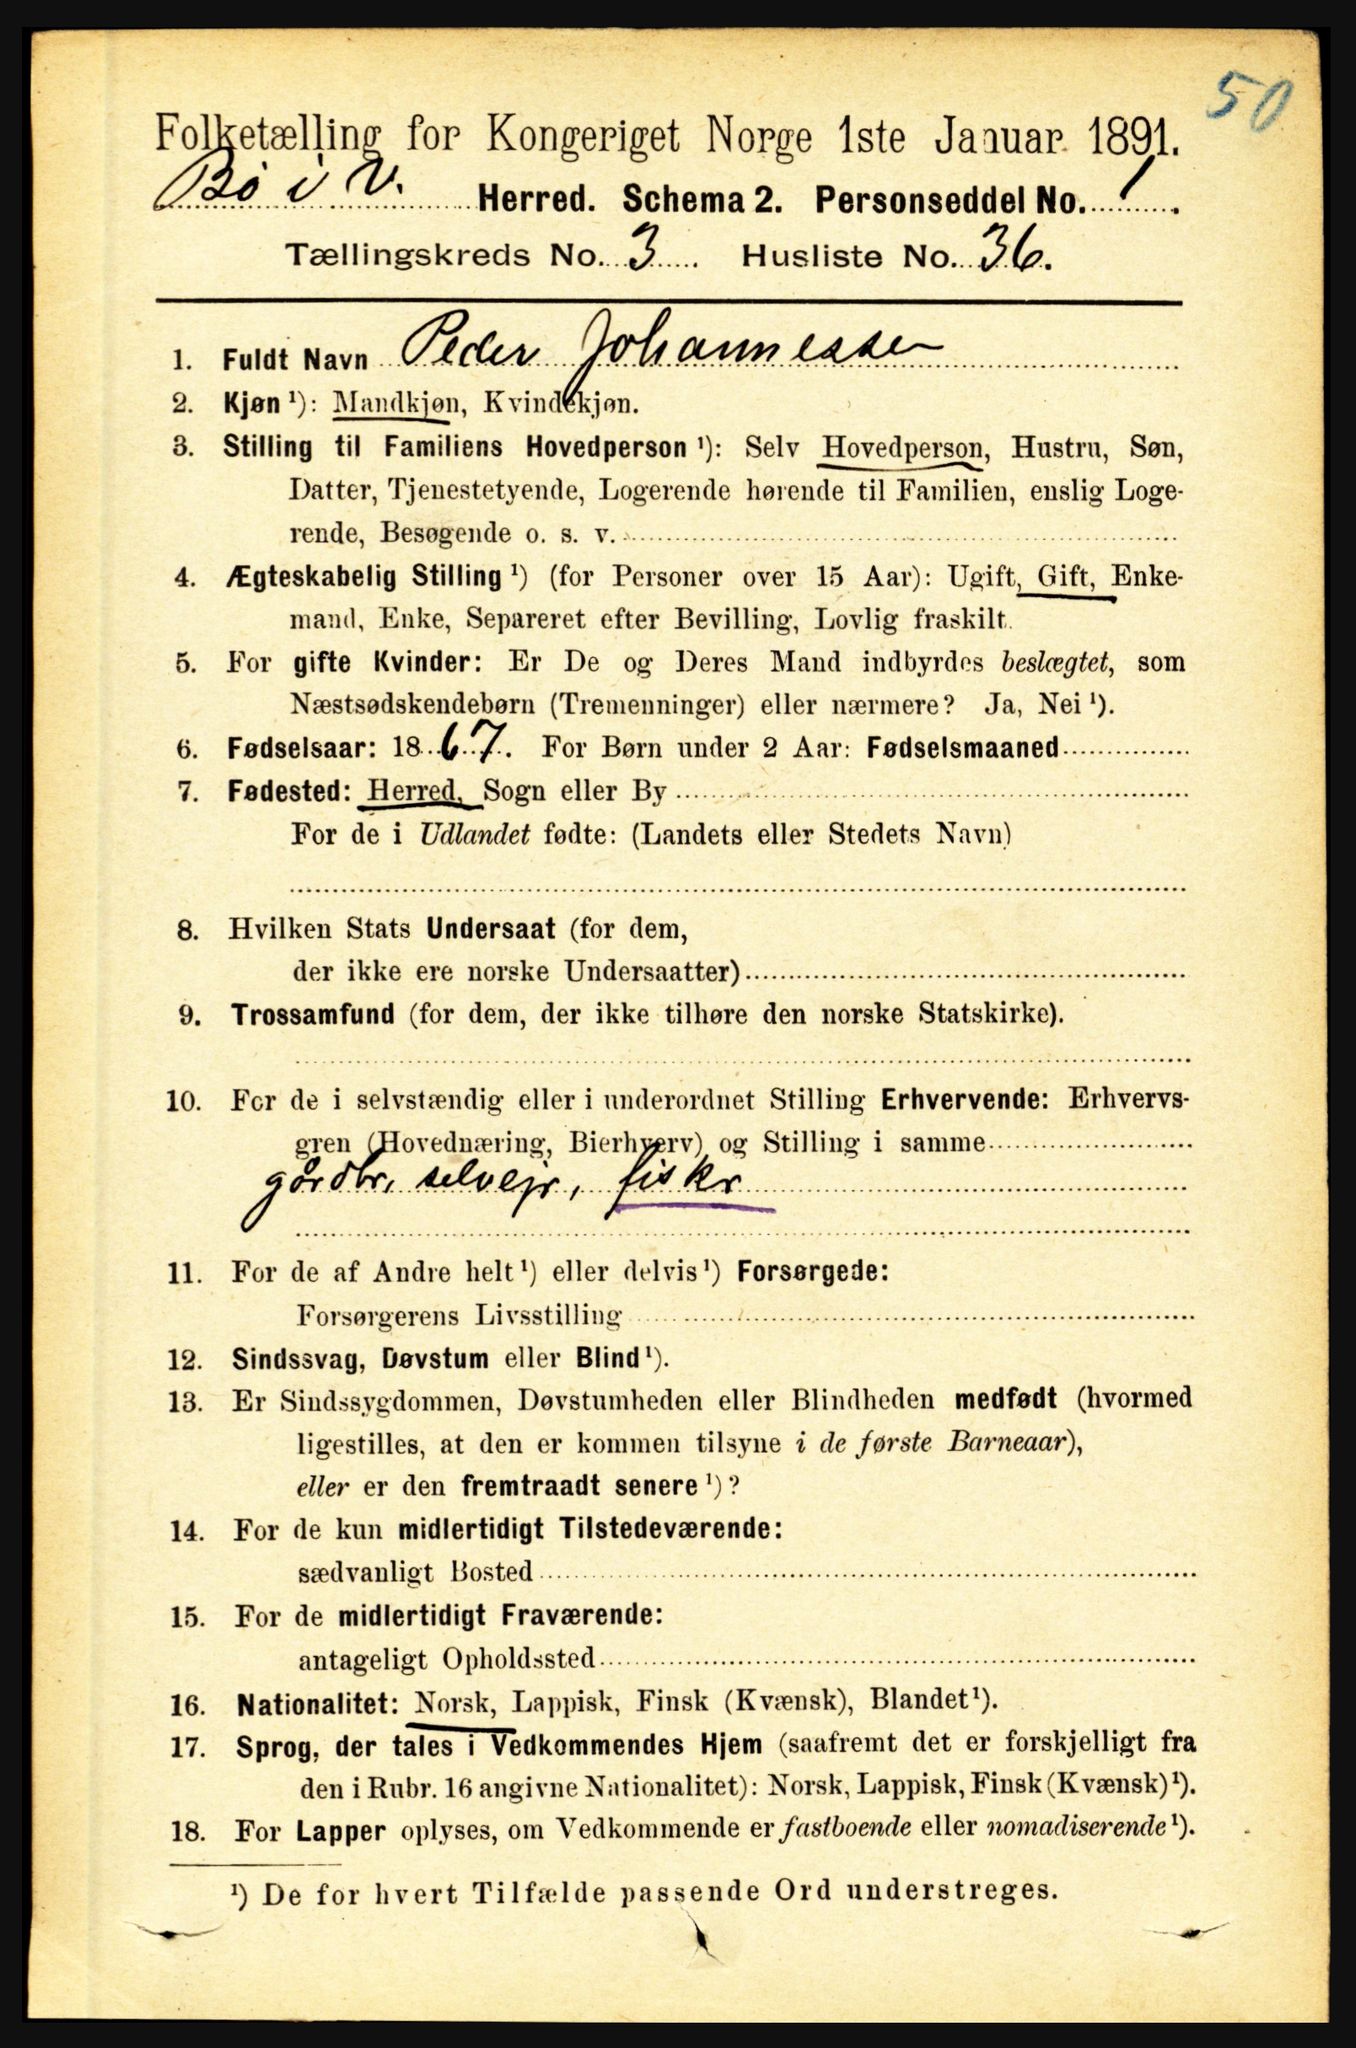 50
Folketælling for Kongeriget Norge 1ste Januar 1891.
Bö i V. Herred. Schema 2. Personseddel No. 1.
Tællingskreds No. 3. Husliste No. 36.
1. Fuldt Navn Peder Johannessen
2. Kjøn ¹): Mandkjøn, Kvindekjøn.
3. Stilling til Familiens Hovedperson ¹): Selv Hovedperson, Hustru, Søn,
Datter, Tjenestetyende, Logerende hørende til Familien, enslig Loge-
rende, Besøgende o. s. v.
4. Ægteskabelig Stilling ¹) (for Personer over 15 Aar): Ugift, Gift, Enke-
mand, Enke, Separeret efter Bevilling, Lovlig fraskilt.
5. For gifte Kvinder: Er De og Deres Mand indbyrdes beslægtet, som
Næstsødskendebørn (Tremenninger) eller nærmere? Ja, Nei ¹).
6. Fødselsaar: 1867. For Børn under 2 Aar: Fødselsmaaned
7. Fødested: Herred, Sogn eller By
For de i Udlandet fødte: (Landets eller Stedets Navn)
8. Hvilken Stats Undersaat (for dem,
der ikke ere norske Undersaatter)
9. Trossamfund (for dem, der ikke tilhøre den norske Statskirke).
10. For de i selvstændig eller i underordnet Stilling Erhvervende: Erhvervs-
gren (Hovednæring, Bierhverv) og Stilling i samme
gårdbr, selvejr, fiskr
11. For de af Andre helt ¹) eller delvis ¹) Forsørgede:
Forsørgerens Livsstilling
12. Sindssvag, Døvstum eller Blind ¹).
13. Er Sindssygdommen, Døvstumheden eller Blindheden medfødt (hvormed
ligestilles, at den er kommen tilsyne i de første Barneaar),
eller er den fremtraadt senere ¹)?
14. For de kun midlertidigt Tilstedeværende:
sædvanligt Bosted
15. For de midlertidigt Fraværende:
antageligt Opholdssted
16. Nationalitet: Norsk, Lappisk, Finsk (Kvænsk), Blandet ¹).
17. Sprog, der tales i Vedkommendes Hjem (saafremt det er forskjelligt fra
den i Rubr. 16 angivne Nationalitet): Norsk, Lappisk, Finsk (Kvænsk) ¹).
18. For Lapper oplyses, om Vedkommende er fastboende eller nomadiserende ¹).
¹) De for hvert Tilfælde passende Ord understreges.